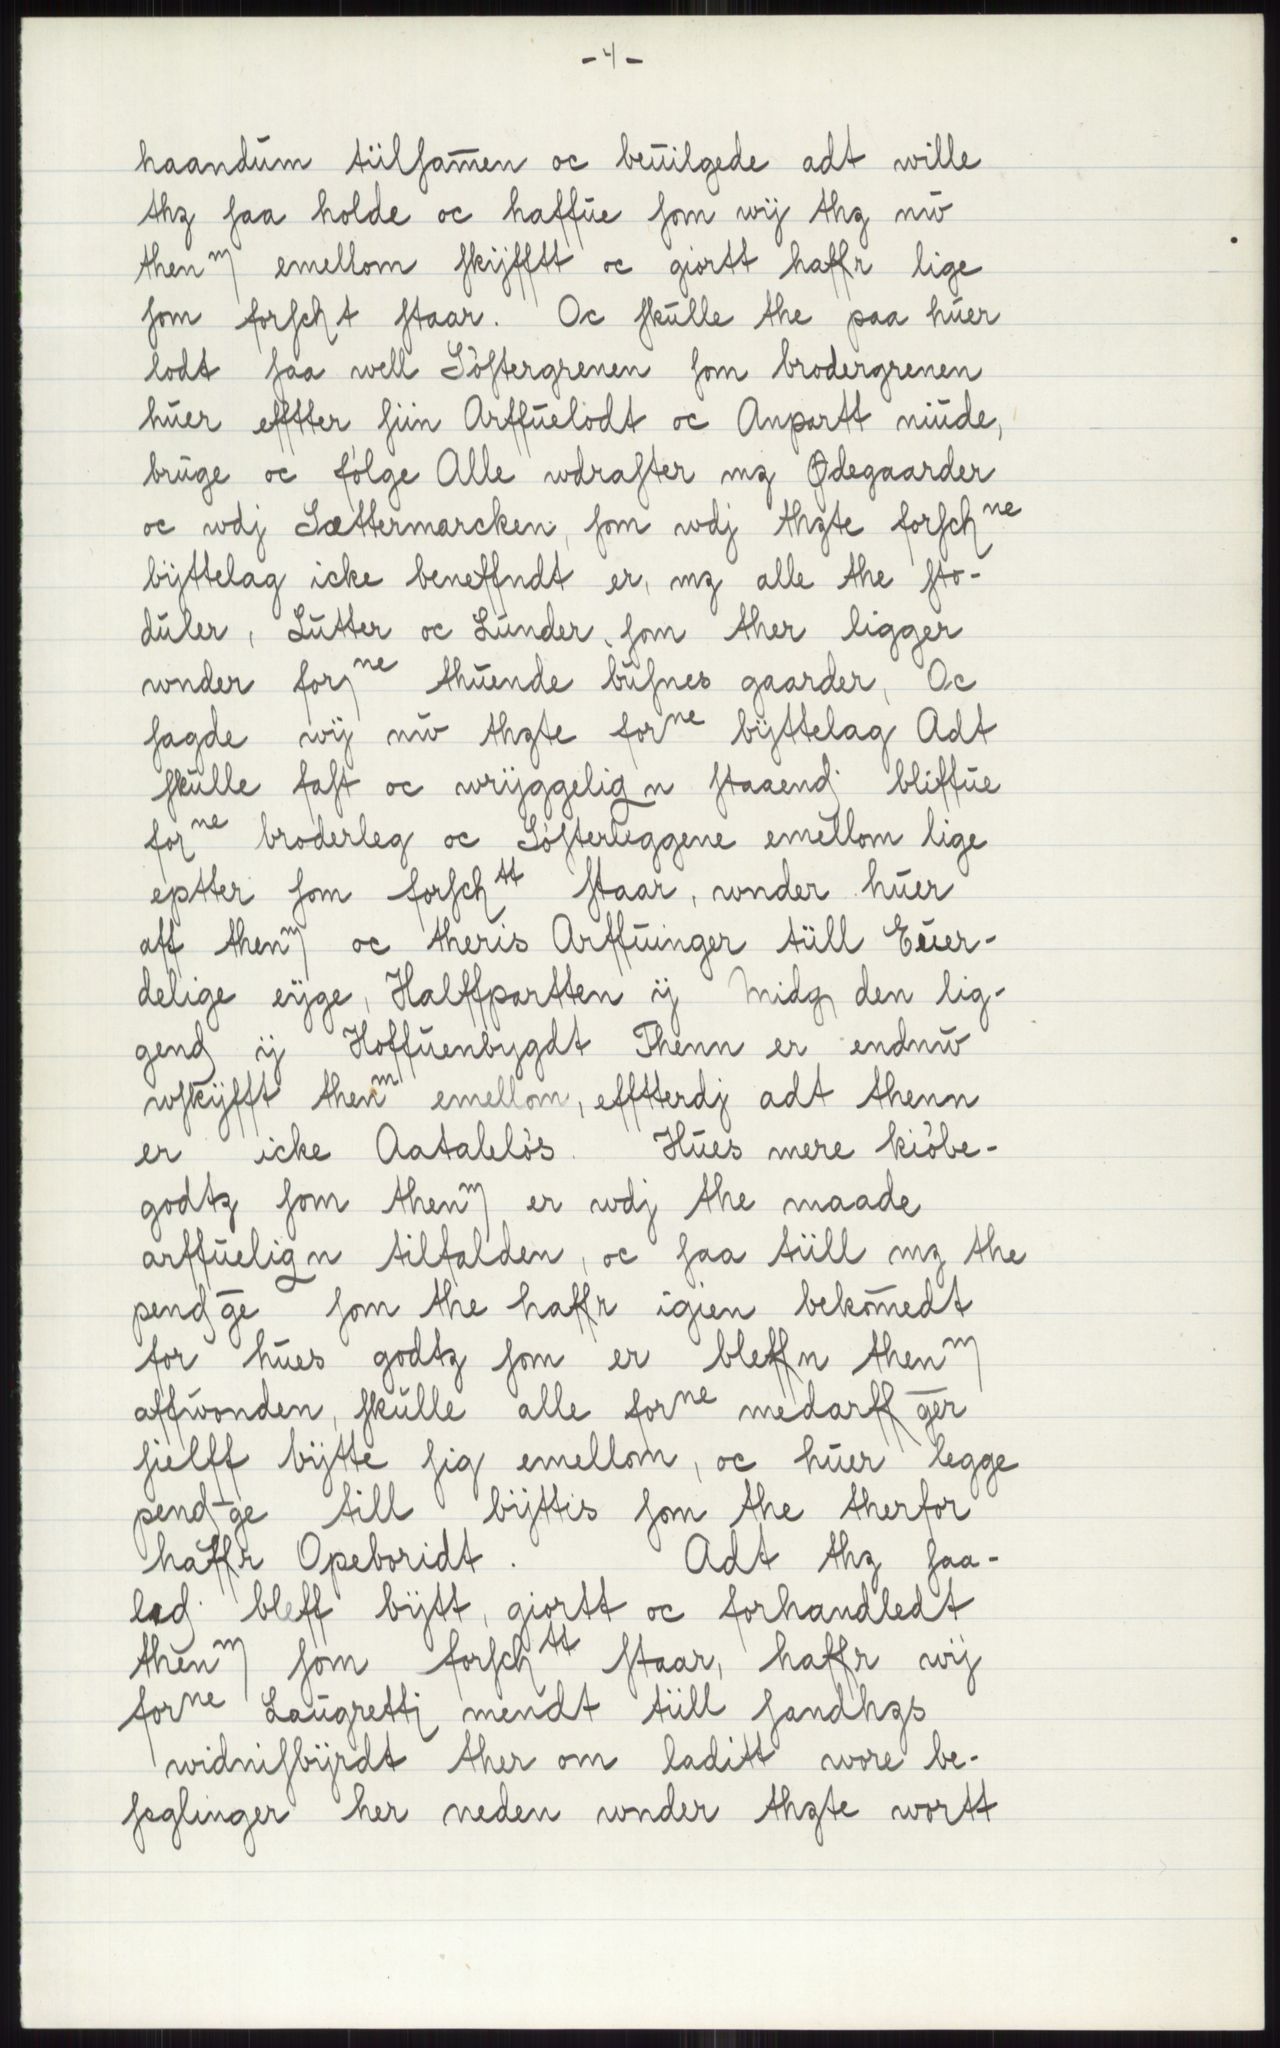 -4-
haandum tiilsam̄en oc beuilgede adt wille
thz saa holde oc haffue som wij thz nw
thenm emellom skijfftt oc giortt haffr lige
som forscht staar. Oc skulle the paa huer
lodt saa well Söstergrenen som brodergrenen
huer efftter siin Arffuelodt oc Anpartt niude,
bruge oc følge Alle wdraster mz Ødegaarder
oc wdj Sættermarcken, som wdj thzte forschne
bÿttelag icke beneffndt er, mz alle the stö-
duler, Lutter oc Lunder, som ther ligger
wnder forne thuende busnes gaarder, Oc
sagde wij nw thzte forne bÿttelag Adt
skulle fast oc wrÿggelign staaend bliffue
forne broderleg oc Sösterleggene emellom lige
eptter som forschtt staar, wnder huer
aff thenm oc theris Arffuinger tiill Euer-
delige eÿge, Halffpartten ij Midg den lig-
gend ij Hoffuenbygdt Thenn er endnw
wskÿfft thenm emellom, efftterdj adt thenn
er icke Aatalelös. Hues mere kiöbe-
godtz som thenm er wdj the maade
arffuelign tilfalden, oc saa tiill mz the
pend̄ge som the haffr igien bekom̄edt
for hues godtz som er bleffn thenm
affwonden, skulle alle forne medarff ḡer
sielff bÿtte sig emellom, oc huer legge
pend̄ge till bÿttis som the therfor
haffr Opeboridt. Adt thz saa-
led bleff bÿtt, giortt oc forhandledt
thenm som forschtt staar, haffr wij
forne Laugrettj mendt tiill sandhzs
widnisbÿrdt ther om laditt wore be-
seglinger her neden wnder thzte wortt